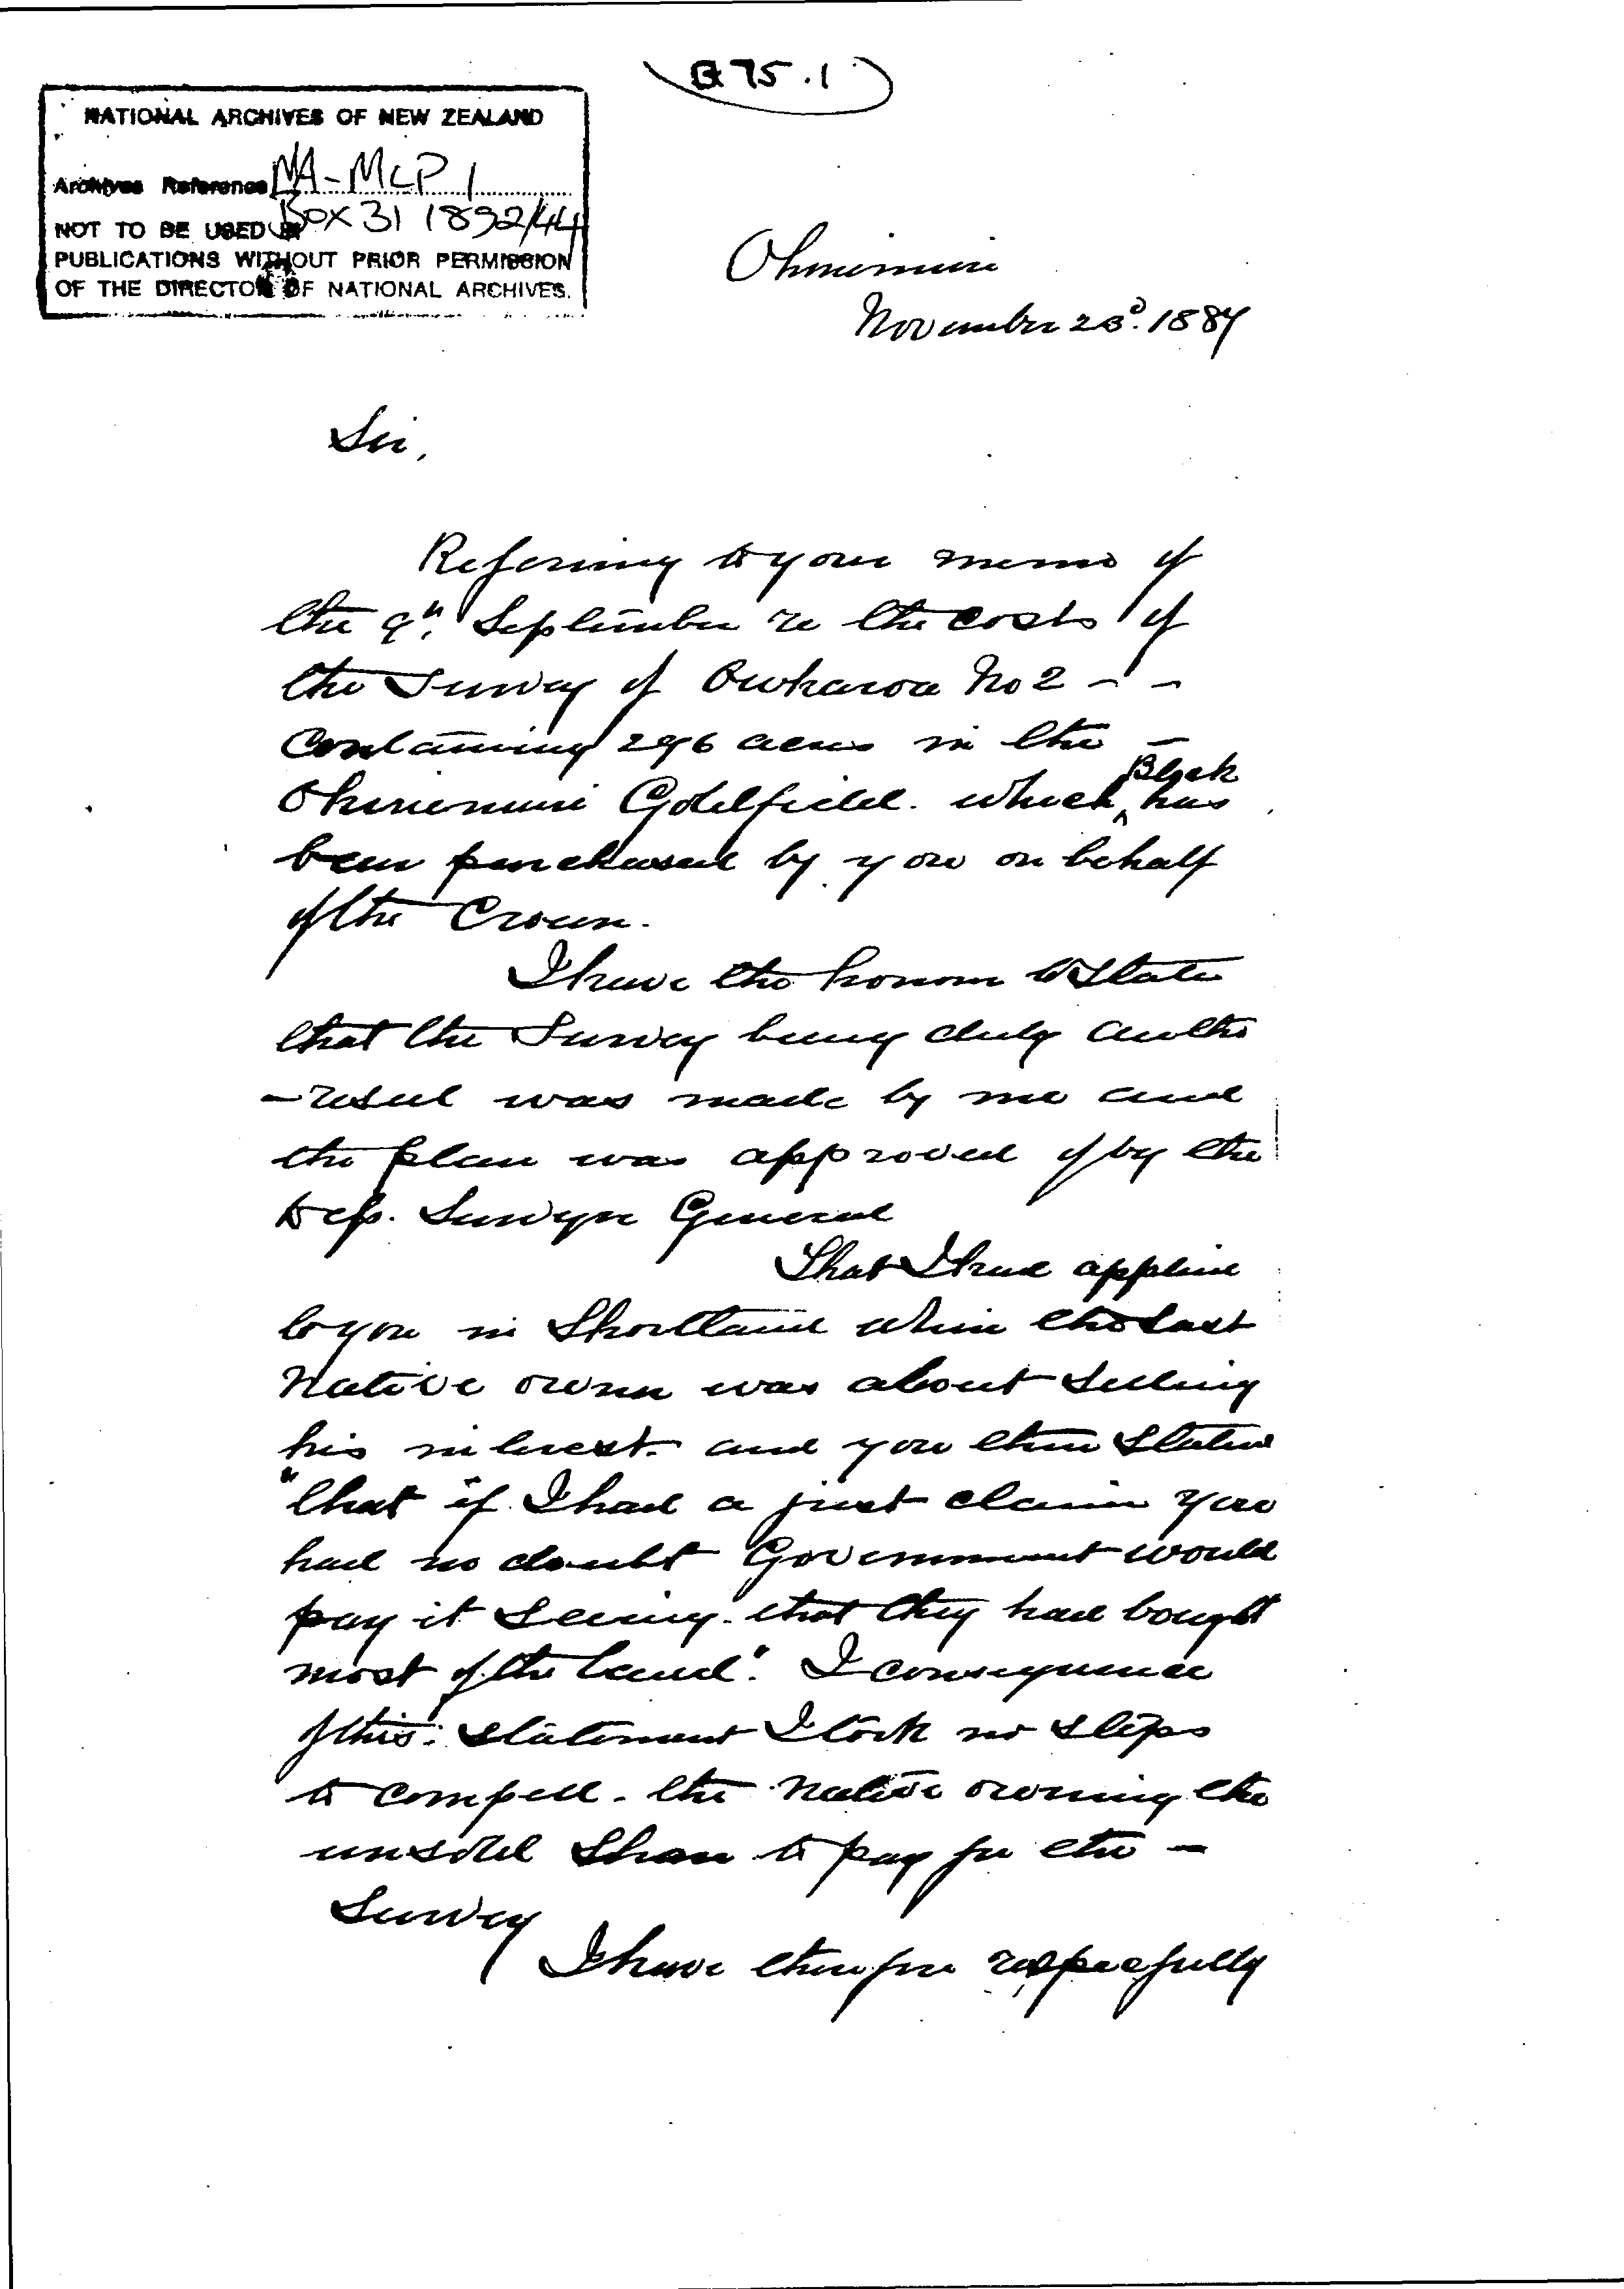 B 75.1
NATIONAL ARCHIVES OF NEW ZEALAND
Archives Reference MA-MLP 1
NOT TO BE USED IN Box 31 1892/44
PUBLICATIONS WITHOUT PRIOR PERMISSION
OF THE DIRECTOR OF NATIONAL ARCHIVES.
Ohinemuri
November 23d. 1887
Sir,
Referring to your memo of
the 9th. September re the costs of
the Survey of Owharoa No 2 - -
Containing 296 acres in the -
Block
Ohinemuri Goldfield. which ^ has
been purchased by you on behalf
of the Crown.
I have the honor to State
that the Survey being duly autho
-rised was made by me and
the plan was approved of by the
Dep. Surveyor General
That I had applied
to you in Shortland when the last
Native owner was about selling
his interest. and you then Stated
"that if I had a just claim you
had no doubt Government would
pay it seeing. that they had bought
most of the land". I consequence
of this. statement I took no steps
to compell. the Native owning the
unsold Share to pay for the -
Survey
I have therefore respecfully